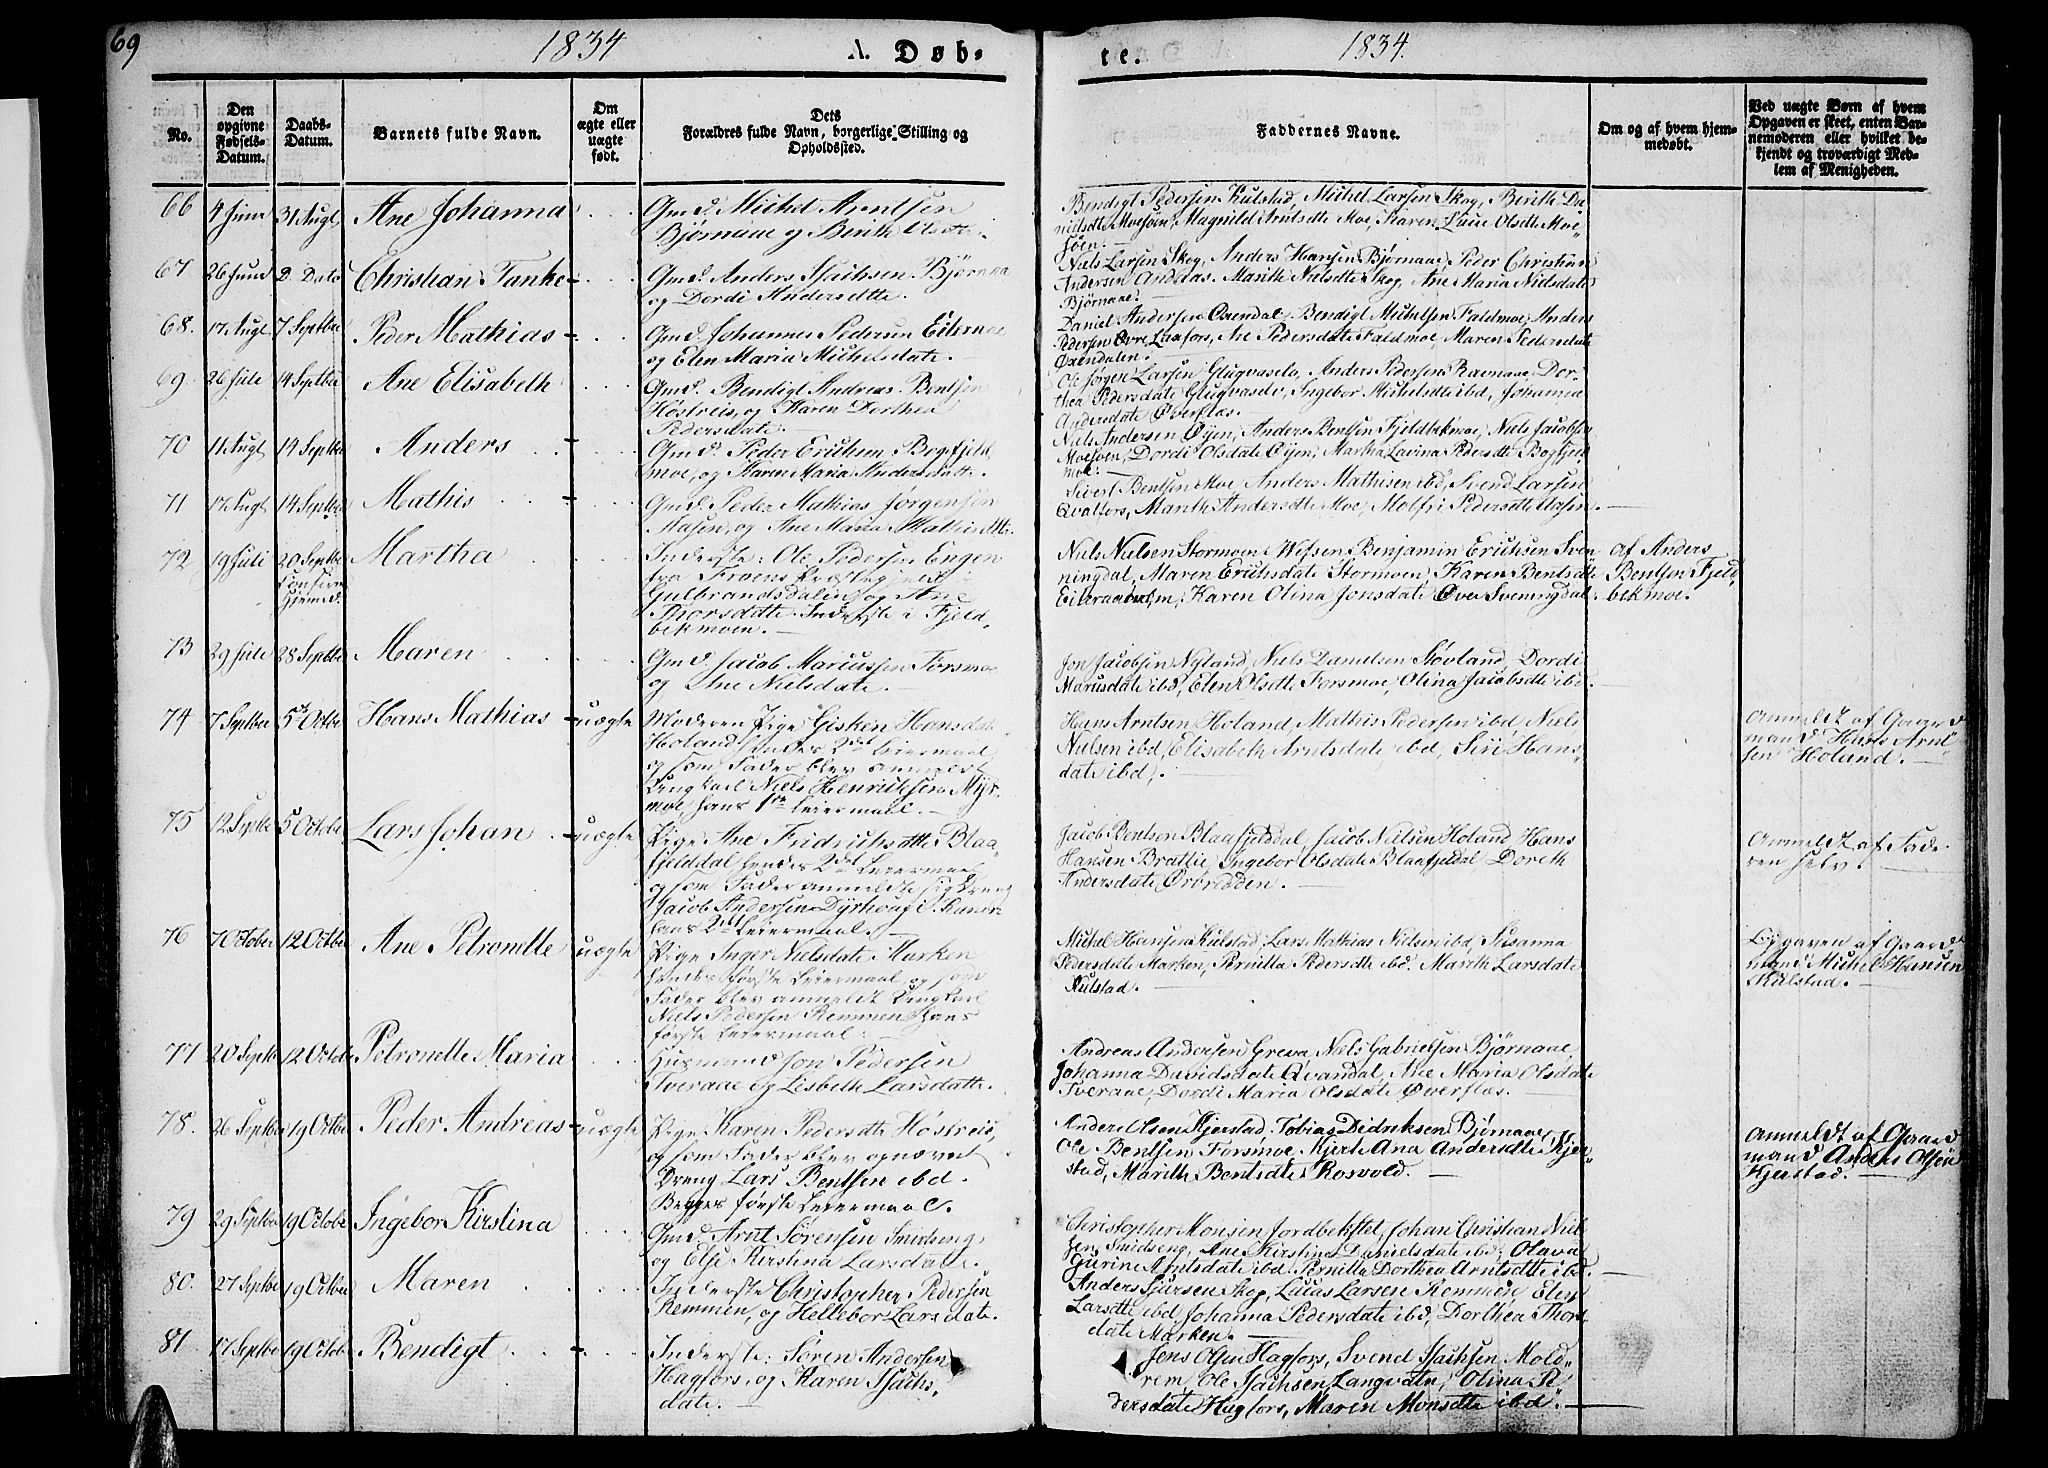 69
1834
A. Døb-
te.
1834.
No.
Den opgivne Fødsels-Datum.
Daabs-Datum.
Barnets fulde Navn.
Om ægte eller uægte født.
Dets
Forældres fulde Navn, borgerlige Stilling og
Opholdssted.
Faddernes Navne.
Om og af hvem hjem-
medøbt.
Ved uægte Børn af hvem
Opgaven er skeet, enten Bar-
nemoderen eller hvilket be-
kjendt og troværdigt Med-
lem af Menigheden.
66 4 Juni 31 Augt Ane Johanna
Gmd. Michel Arntsen
Bjørnaae og Berith Olsdtte.
Bendigt Pedersen Kulstad, Michel Larsen Skog, Berithe Da-
nielsdtte Moesøen, Magnild Arntsdtte Moe, Karen Lucie Olsdtte Moe-
søen.
67 26 Juni D. Dato Christian Tanke
Gmd. Anders Isachsen Bjørnaa
og Dordi Andersdtte.
Niels Larsen Skog, Anders Hansen Bjørnaae, Peder Christian
Andersen Andaas, Marith Nielsdtte Skog, Ane Maria Nielsdate
Bjørnaae.
68. 17 Augt 7 Septbr Peder Mathias
Gmd. Johannes Pedersen Eiteraae
og Elen Maria Michelsdate.
Daniel Andersen Oxendal, Bendigt Michelsen Faldmoe, Anders
Pedersen Øvre Laxfors, Ane Pedersdate Faldmoe, Maren Pedersdate
Oxendalen.
69 26 Juli 14 Septbr Ane Elisabeth
Gmd. Bendigt Andreas Bentsen
Høstreis, og Karen Dorthea
Pedersdate.
Ole Jørgen Larsen Glugvasela, Anders Pedersen Ravnaae, Dor-
thea Pedersdate Glugvasele, Ingebor Michelsdtte ibd, Johanna
Andersdate Øverflaes.
70 11 Augt 14 Septbr Anders
Gmd. Peder Erichsen Bogfjeld
moe, og Karen Maria Andersdatte.
Niels Andersen Øyen, Anders Bentsen Fjeldbekmoe, Niels Jacobsen
Moesøen, Dordi Olsdate Øyen, Martha Lavina Pedersdtte Bogfjeld
moe.
71 17 Augt 14 Septbr Mathis
Gmd. Peder Mathias Jørgensen
Aasen, og Ane Maria Mathisdtte.
Sivert Bentsen Moe Anders Mathisen ibd, Svend Larsen
Qvalfors, Marith Andersdtte Moe, Molfri Pedersdtte Aasen.
72 19 Juli 20 Septbr Martha
Inderste: Ole Pedersen Engen
fra Froens Præstegjeld
Gulbrandsdalen og Ane
Thorsdatte Inderste i Fjeld-
bekmoen.
Niels Nielsen Stormoen i Wefsen, Benjamin Erichsen Sven-
ningdal, Maren Erichsdate Stormoen, Karen Bentsdtte
Eiteraaen, Karen Olina Jonsdate Øver Svenningdal.
af Anders
Bentsen Fjeld-
bekmoe.
73 29 Juli 28 Septbr Maren
Gmd. Jacob Mariussen Forsmoe
og Ane Nielsdate.
Jon Jacobsen Nyland, Niels Danielsen Støvland, Dordi
Mariusdate ibd, Elen Olsdtte Forsmoe, Olina Jacobsdtte ibd.
74 7 Septbr 5te Octbr Hans Mathias uægte
Moderen Pige Gisken Hansdate
Holand, hendes 2det Leiermaal
og som Fader blev anmeldt
Ungkarl Niels Henrichsen Myr-
moe, hans 1ste Leiermaal.
Hans Arntsen Holand, Mathis Pedersen ibd, Niels
Nielsen ibd, Elisabeth Arntsdate ibd, Siri Hans-
date ibd.
Anmeldt af Gaard
mand Hans Arnt
sen Holand.
75 12 Septbr 5 October Lars Johan uægte
Pige Ane Fridrichsdtte Blaa-
fjelddal hendes 2det Leiermaal
og som Fader anmeldte sig Dreng
Jacob Andersen Dyrhoug i Ranen
hans 2det Leiermaal.
Jacob Bentsen Blaafjelddal, Jacob Nielsen Holand, Hans
Hansen Brattlie, Ingebor Olsdate Blaafjeldal, Doreth
Andersdate Ørbredden.
Anmeldt af Fade-
ren selv.
76 7 October 12 Octbr Ane Petronelle uægte
Pige Inger Nielsdate Marken
hendes første Leiermaal og som
Fader blev anmeldt Ungkarl
Niels Pedersen Remmen hans
første Leiermaal.
Michel Hansen Kulstad, Lars Mathias Nielsen ibd, Susanna
Pedersdtte Marken, Pernilla Pedersdtte ibd. Marith Larsdate
Kulstad.
Opgaven af Gaard
mand Michel Hansen
Kulstad.
77 20 Septbr 12 Octobr Petronelle Maria
Husmand Jon Pedersen
Tveraae og Lisbeth Larsdatte.
Andreas Andersen Greva, Niels Gabrielsen Bjørnaae,
Johanna Davidsdate Qvandal, Ane Maria Olsdate
Tveraae, Dordi Maria Olsdate Øverflaes.
78. 26 Septbr 19 Octbr Peder Andreas uægte
Pige Karen Pedersdtte Høstreis,
og som Fader blev opnævnt
Dreng Lars Bentsen ibd.
Begges første Leiermaal.
Anders Olsen Kjerstad, Tobias Didriksen Bjørnaae,
Ole Bentsen Forsmoe, Ana Andersdtte Kjer-
stad, Marith Bentsdate Rosvold.
Anmeldt af Gaard
mand Anders Olsen
Kjerstad.
79 29 Septbr 19 Octobr Ingebor Kirstina
Gmd. Arnt Sørensen Smidseng,
og Else Kirstina Larsdatte.
Christopher Monsen Jordbekslet, Johan Christian Niel-
sen Smidseng, Ane Kirstina Danielsdate ibd, Olava
Gurine Arntsdate ibd. Pernilla Dorthea Arntsdtte ibd.
80. 27 Septbr 19 Octbr Maren
Inderste Christopher Pedersen
Remmen, og Hellebor Larsdate.
Anders Sjursen Skog, Lucas Larsen Remmen, Elen
Larsdtte ibd, Johanna Pedersdate ibd, Dorthea Thors
date Marken.
81 17 Septbr 19 Octobr Bendigt
Inderste: Søren Andersen
Hagfors, og Karen Isachs-
date.
Jens Olsen Hagfors, Svend Isachsen Mold-
rem, Ole Isachsen Langvatn, Olina Pe-
dersdate Hagfors, Maren Monsdtte ibd.